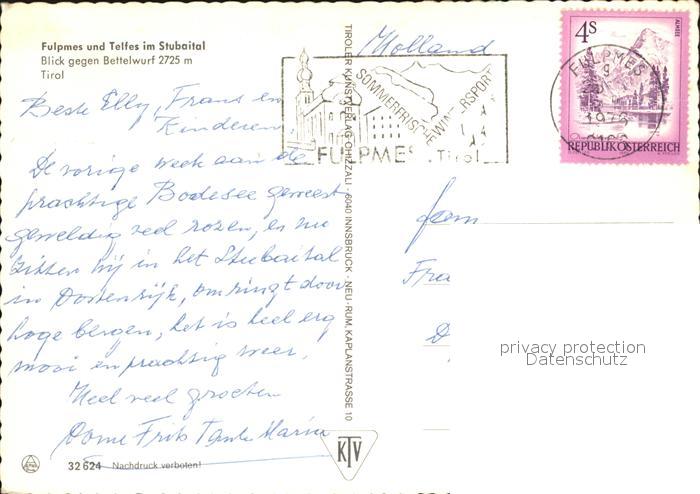 Fulpmes und Telfes im Stubaital
Blick gegen Bettelwurf 2725 m
Tirol
Holland
Beste Elly, Frans en
Kinderen,
De vorige week aan de
prachtige Bodesee geweest
geweldig veel rozen, en nu
zitten wij in het Stubaital
in Oostenrijk, omringt door
hoge bergen, het is heel erg
mooi en prachtig weer.
Heel veel groeten
Oome Frits Tante Marie
32 624 Nachdruck verboten!
TIROLER KUNSTVERLAG CHIZZALI · 6040 INNSBRUCK - NEU-RUM, KAPLANSTRASSE 10
KTV
SOMMERFRISCHE WINTERSPORT
FULPMES . Tirol
FULPMES
9
1976
4S
ALMSEE
REPUBLIK ÖSTERREICH
fam
Fra
D
privacy protection
Datenschutz